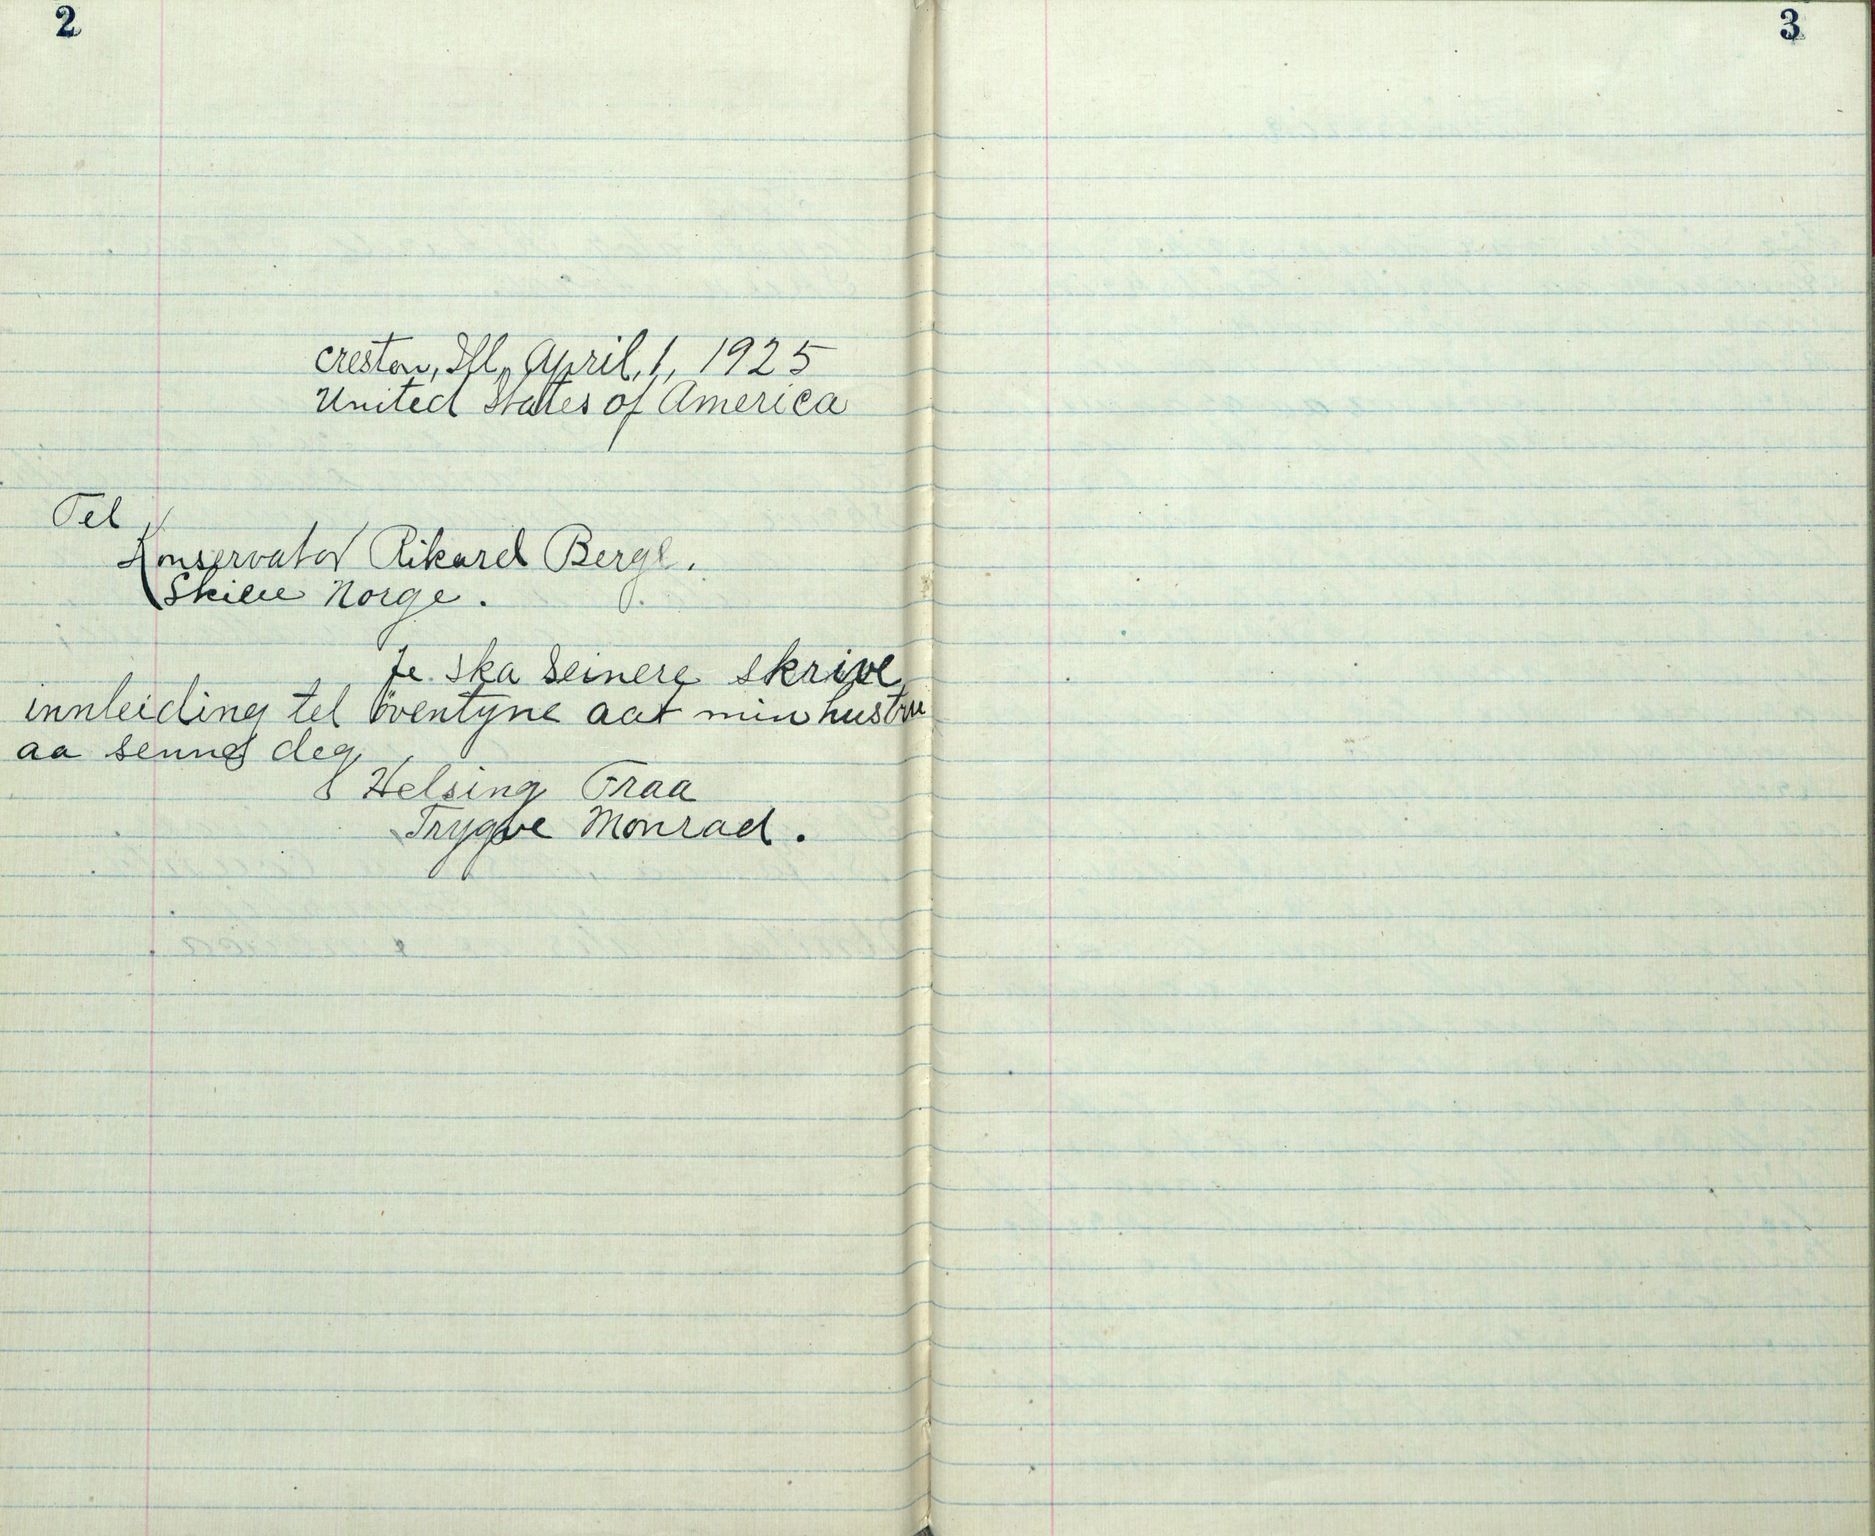 2
Creston, Ill, April, 1, 1925
United States of America
Tel
Konservator Rikard Berge.
Skien Norge.
Je ska seinere skrive
innleiding tel öventyne aat min hustru
aa senne deg
Helsing Fraa
Trygve Monrad.
3